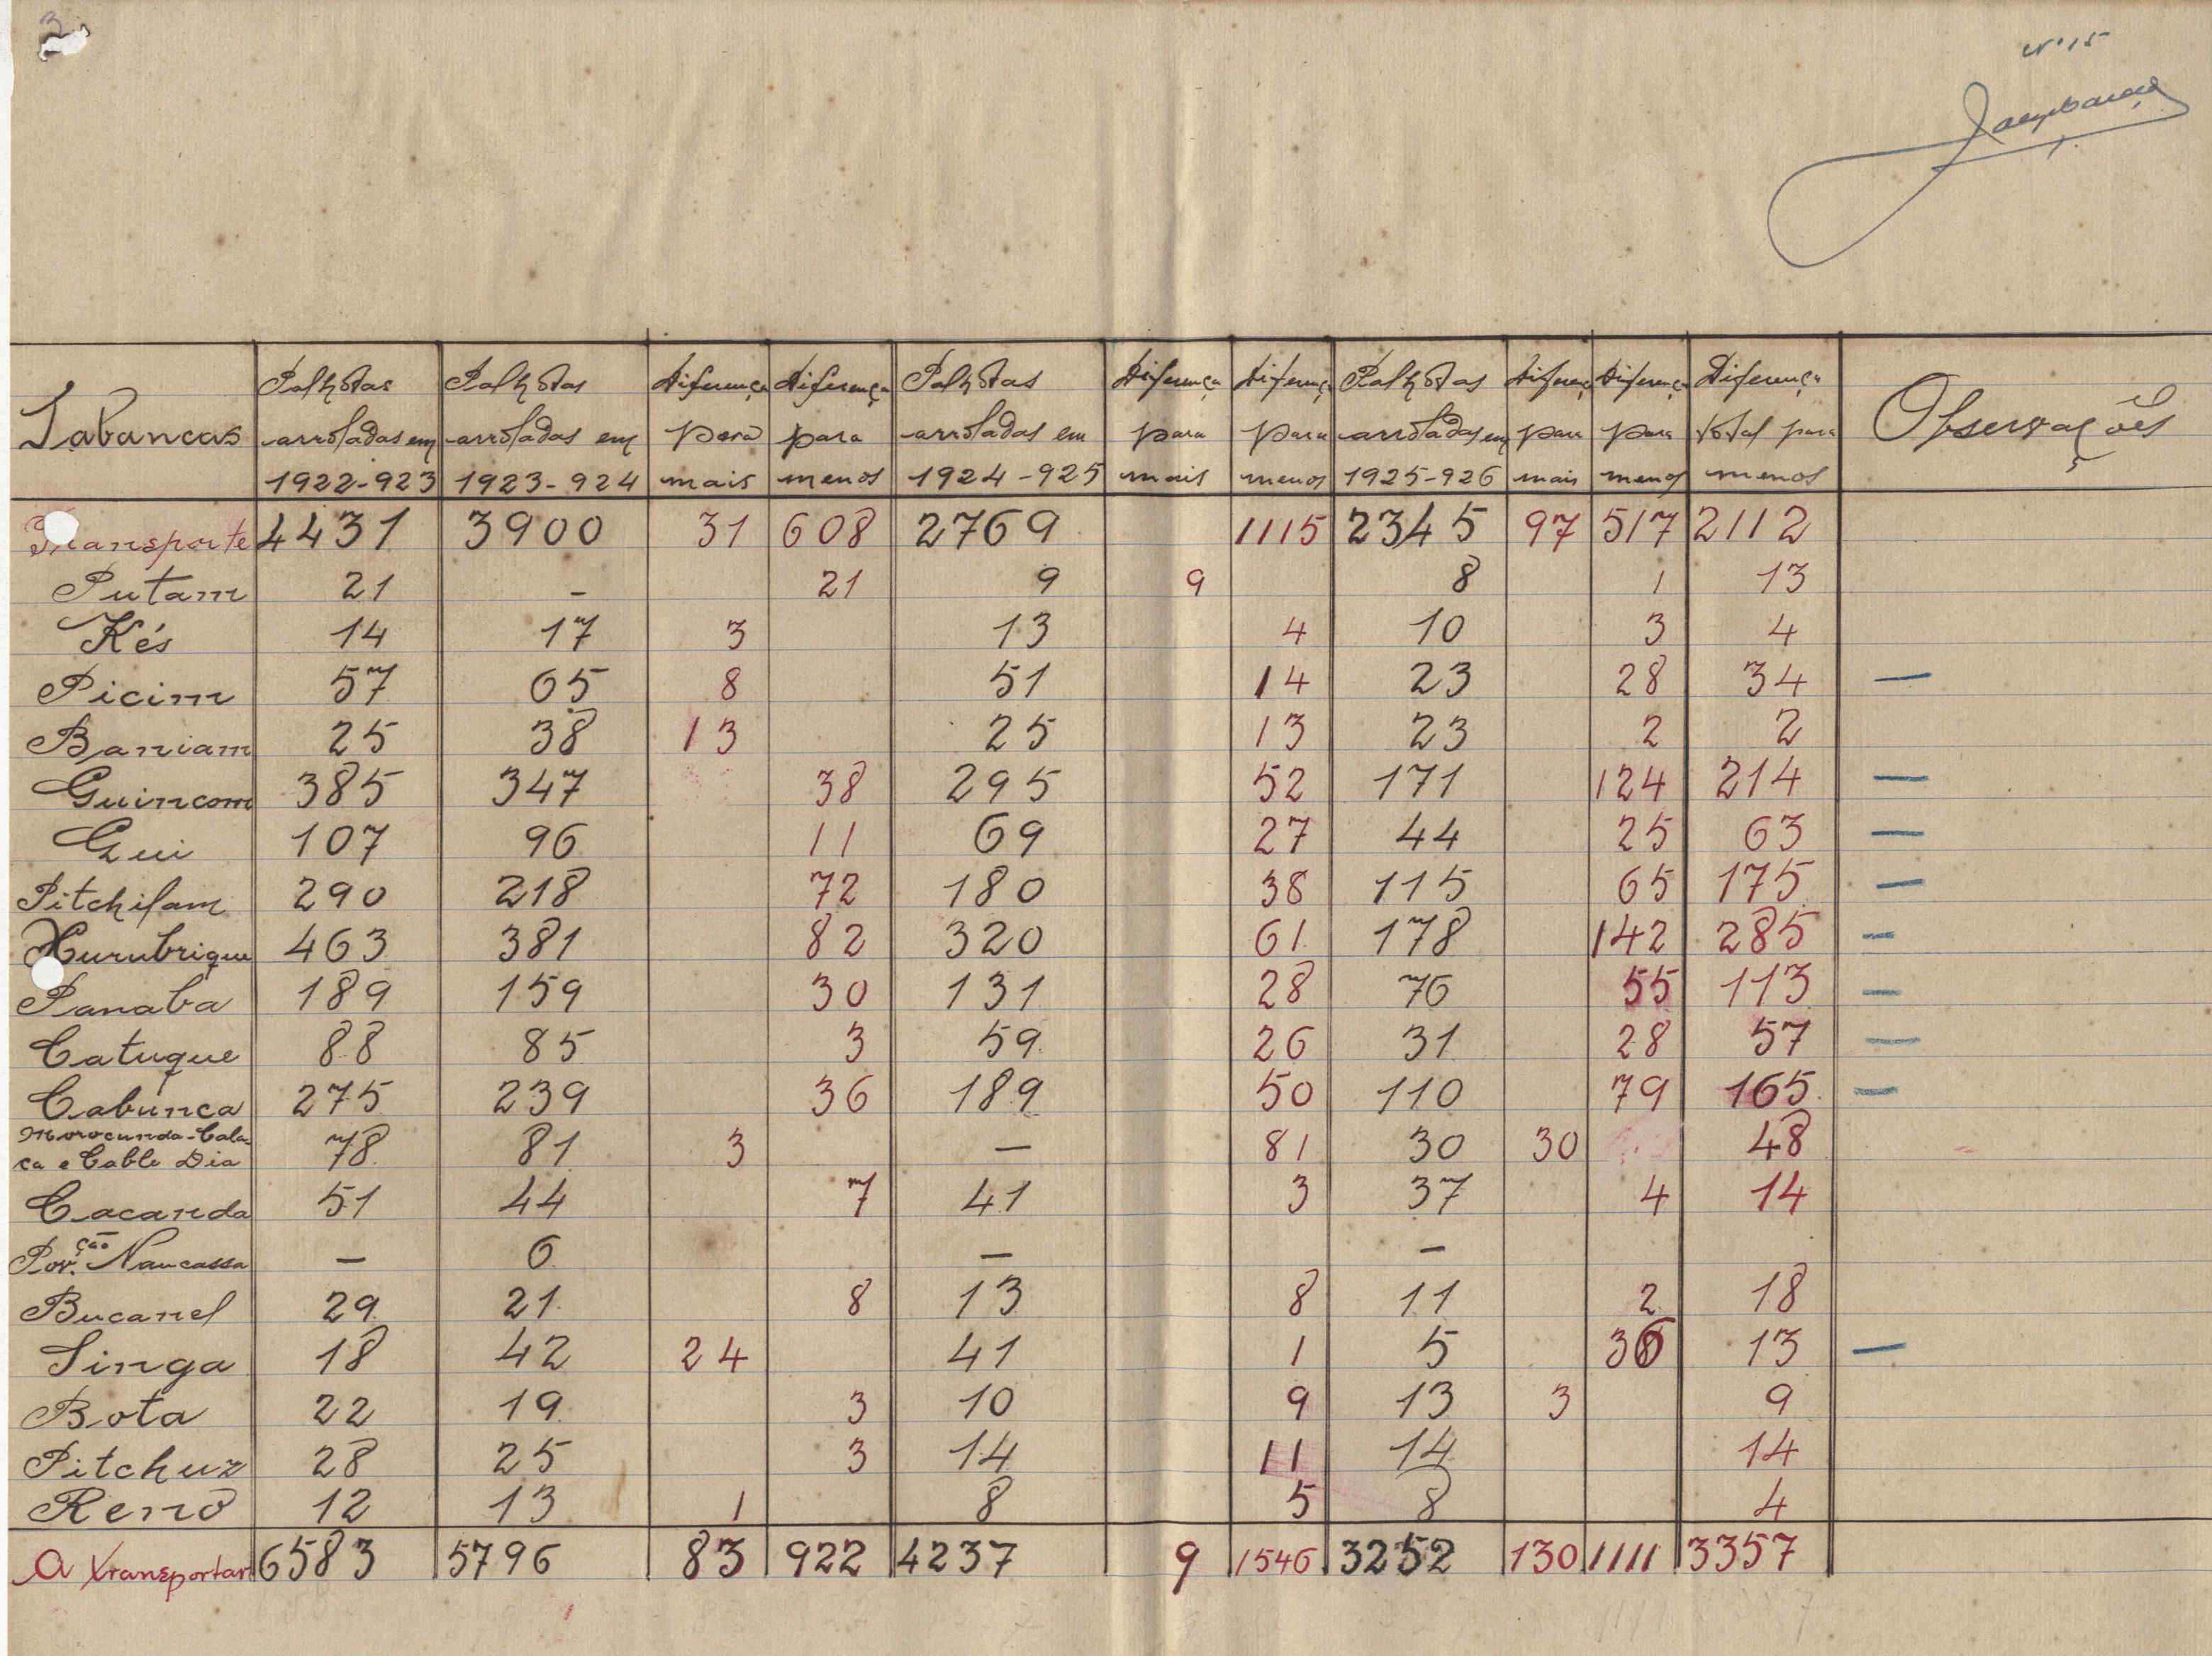 3
Nº 15
Tabancas | Palhotas arroladas em 1922-923 | Palhotas arroladas em 1923-924 | Diferença para mais | Diferença para menos | Palhotas arroladas em 1924-925 | Diferença para mais | Diferença para menos | Palhotas arroladas em 1925-926 | Diferença para mais | Diferença para menos | Diferença total para menos | Observações
Transporte 4431 3900 31 608 2769 1115 2345 97 517 2112
Putam 21 - 21 9 9 8 1 13
Kés 14 17 3 13 4 10 3 4
Picim 57 65 8 51 14 23 28 34 —
Baniam 25 38 13 25 13 23 2 2
Guincom 385 347 38 295 52 171 124 214 —
Gui 107 96 11 69 27 44 25 63 —
Pitchilam 290 218 72 180 38 115 65 175 —
Xurubrique 463 381 82 320 61 178 142 285 —
Panaba 189 159 30 131 28 76 55 113 —
Catuque 88 85 3 59 26 31 28 57 —
Cabunca 275 239 36 189 50 110 79 165 —
Morocunda-Cala-
ca e Cable Dia 78 81 3 — 81 30 30 48
Cacanda 51 44 7 41 3 37 4 14
Pov.ção Naucassa — 6 — —
Bucanel 29 21 8 13 8 11 2 18
Singa 18 42 24 41 1 5 36 13 —
Bota 22 19 3 10 9 13 3 9
Pitchuz 28 25 3 14 11 14 14
Renō 12 13 1 8 5 8 4
A transportar 6583 5796 83 922 4237 9 1546 3252 130 1111 3357